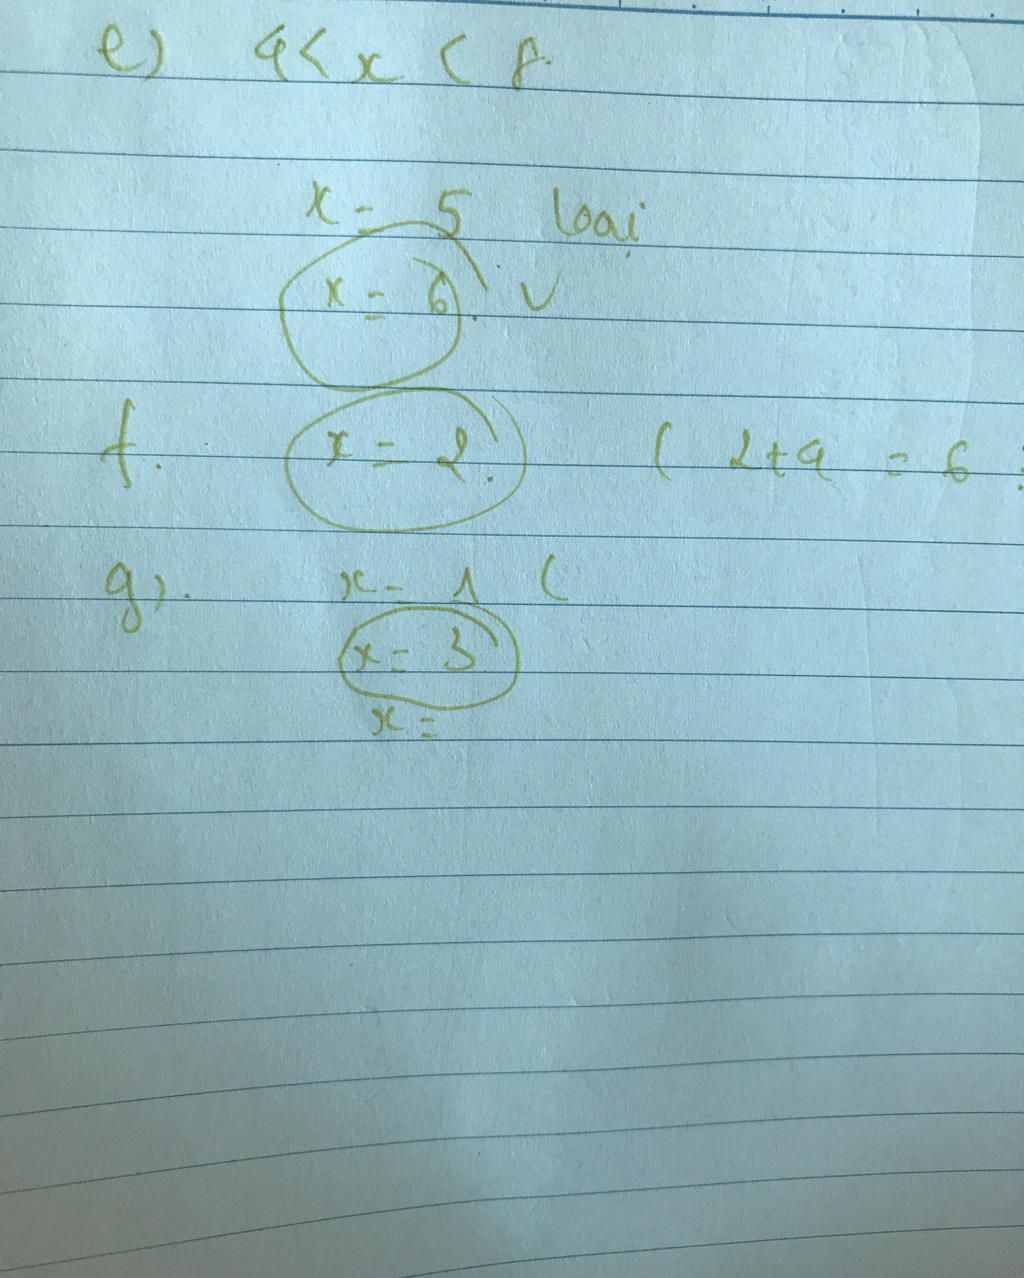 e) 4 < x < 8.
x = 5 loại
x = 6. v
f. x = 2. ( 2+4 = 6 :
g). x = 1 (
x = 3
x =